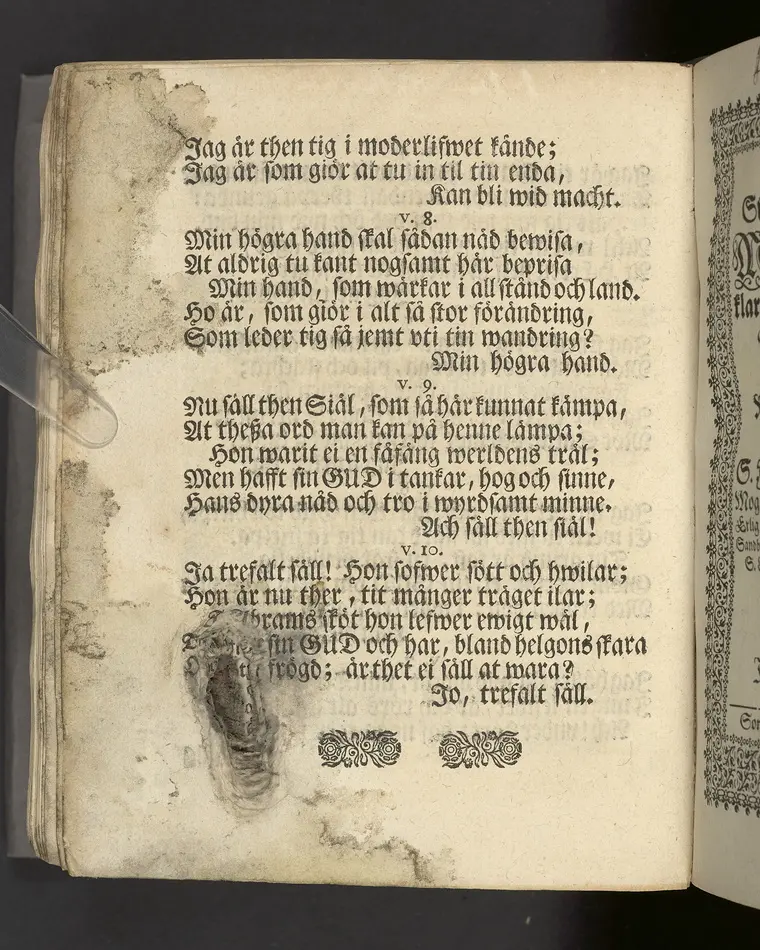 Jag är then tig i moderlifwet kände;
Jag är som giör at tu in til tin enda,
Kan bli wid macht.
v. 8.
Min högra hand skal sådan nåd bewisa,
At aldrig tu kant nogsamt här beprisa
Min hand, som wärkar i all stånd och land.
Ho är, som giör i alt så stor förändring,
Som leder tig så jemt vti tin wandring?
Min högra hand.
v. 9.
Nu säll then Siäl, som så här kunnat kämpa,
At theßa ord man kan på henne lämpa;
Hon warit ei en fåfäng werldens träl;
Men hafft sin GUD i tankar, hog och sinne,
Hans dyra nåd och tro i wyrdsamt minne.
Ach säll then siäl!
v. 10.
Ja trefalt säll! Hon sofwer sött och hwilar;
Hon är nu ther, tit månger träget ilar;
sköt hon lefwer ewigt wäl,
sin GUD och har, bland helgons skara
frögd; är thet ei säll at wara?
Jo, trefalt säll.
klar
S.
Mog
Sandb